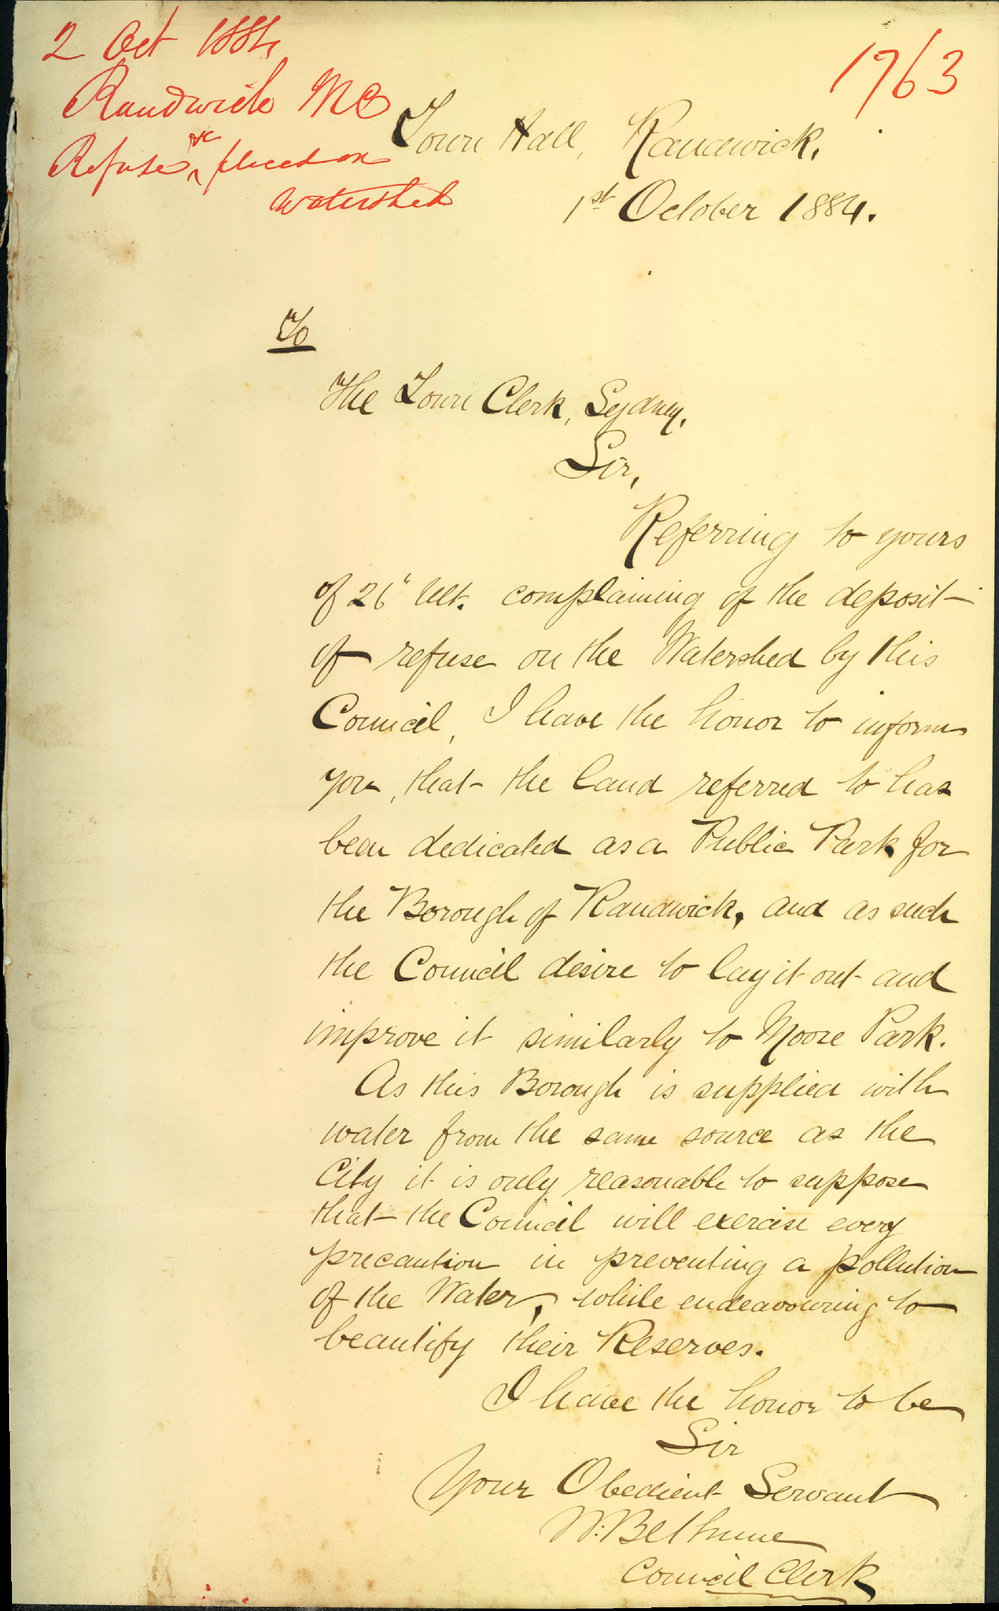 2 Oct 1884
1763
Randwick MC
Refuse &c placed on
Watershed
Town Hall, Randwick,
1st October 1884.
To
The Town Clerk, Sydney,
Sir,
Referring to yours
of 26" Ult. complaining of the deposit
of refuse on the Watershed by this
Council, I have the honor to inform
you, that the land referred to has
been dedicated as a Public Park for
the Borough of Randwick, and as such
the Council desire to lay it out and
improve it similarly to Moore Park.
As this Borough is supplied with
water from the same source as the
City it is only reasonable to suppose
that the Council will exercise every
precaution in preventing a pollution
of the Water, while endeavouring to
beautify their Reserves.
I have the honor to be
Sir
Your Obedient Servant
W: Bethune
Council Clerk